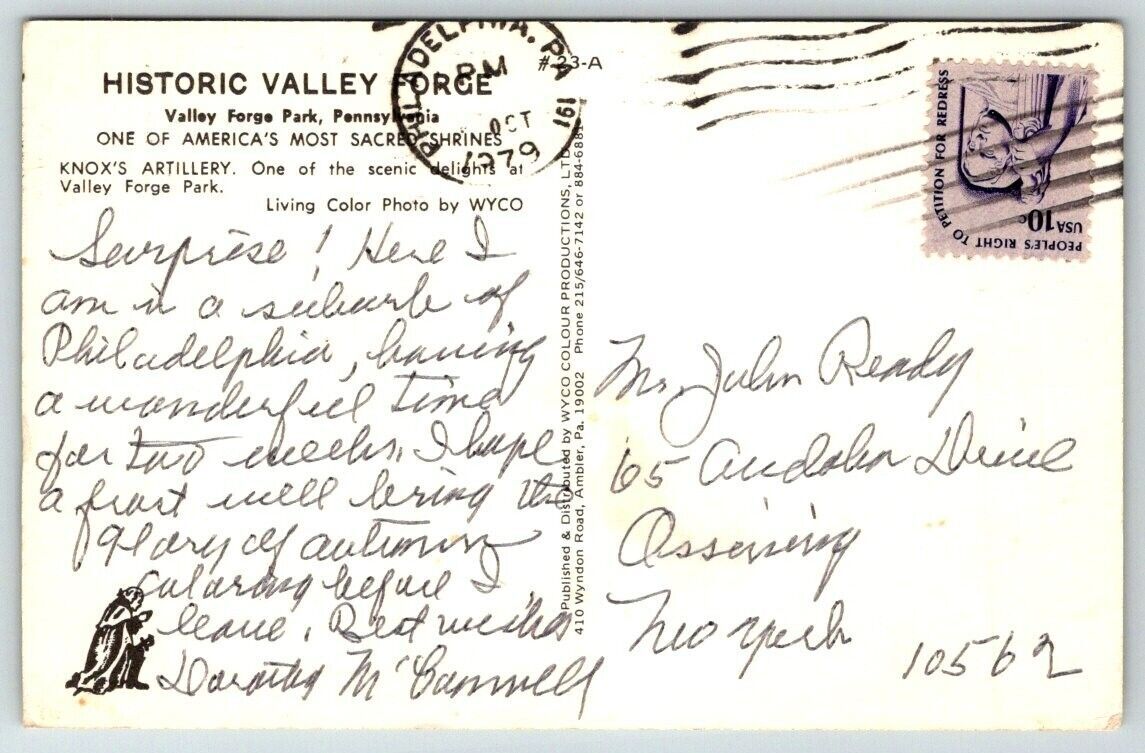 HISTORIC VALLEY FORGE
Valley Forge Park, Pennsylvania
ONE OF AMERICA'S MOST SACRED SHRINES
KNOX'S ARTILLERY. One of the scenic delights at
Valley Forge Park.
Living Color Photo by WYCO
#23-A
PHILADELPHIA, PA
PM
OCT
1979
191
PEOPLE'S RIGHT TO PETITION FOR REDRESS
USA 10c
Surprise! Here I
am in a suburb of
Philadelphia, having
a wonderful time
for two weeks. I hope
a frost will bring the
glory of autumn
coloring before I
leave. Best wishes
Dorothy
Published & Distributed by WYCO COLOUR PRODUCTIONS, LTD.
410 Wyndon Road, Ambler, Pa. 19002 Phone 215/646-7142 or 884-6881
Mr. John Ready
65 Drive
Ossining
New York 10562